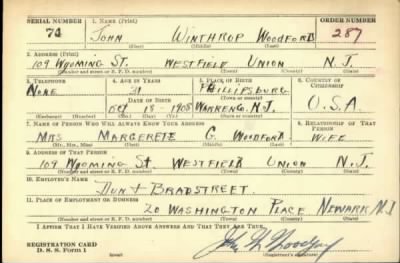 SERIAL NUMBER 1. NAME (Print) ORDER NUMBER
71 JOHN WINTHROP WOODFORD 287
(First) (Middle) (Last)
2. ADDRESS (Print)
109 WYOMING ST. WESTFIELD UNION N.J.
(Number and street or R. F. D. number) (Town) (County) (State)
3. TELEPHONE 4. AGE IN YEARS 5. PLACE OF BIRTH 6. COUNTRY OF CITIZENSHIP
NONE 31 PHILLIPSBURG
DATE OF BIRTH (Town or county)
OCT 18-1908 WARREN CO. N.J. U.S.A
(Exchange) (Number) (Mo.) (Day) (Yr.) (State or country)
7. NAME OF PERSON WHO WILL ALWAYS KNOW YOUR ADDRESS 8. RELATIONSHIP OF THAT PERSON
MRS MARGERETE G. WOODFORD WIFE
(Mr., Mrs., Miss) (First) (Middle) (Last)
9. ADDRESS OF THAT PERSON
109 WYOMING ST. WESTFIELD UNION N.J.
(Number and street or R. F. D. number) (Town) (County) (State)
10. EMPLOYER'S NAME
DUN & BRADSTREET.
11. PLACE OF EMPLOYMENT OR BUSINESS
20 WASHINGTON PLACE NEWARK N.J
(Number and street or R. F. D. number) (Town) (County) (State)
I AFFIRM THAT I HAVE VERIFIED ABOVE ANSWERS AND THAT THEY ARE TRUE.
REGISTRATION CARD John W Woodford
D. S. S. Form 1 (over) (Registrant's signature)